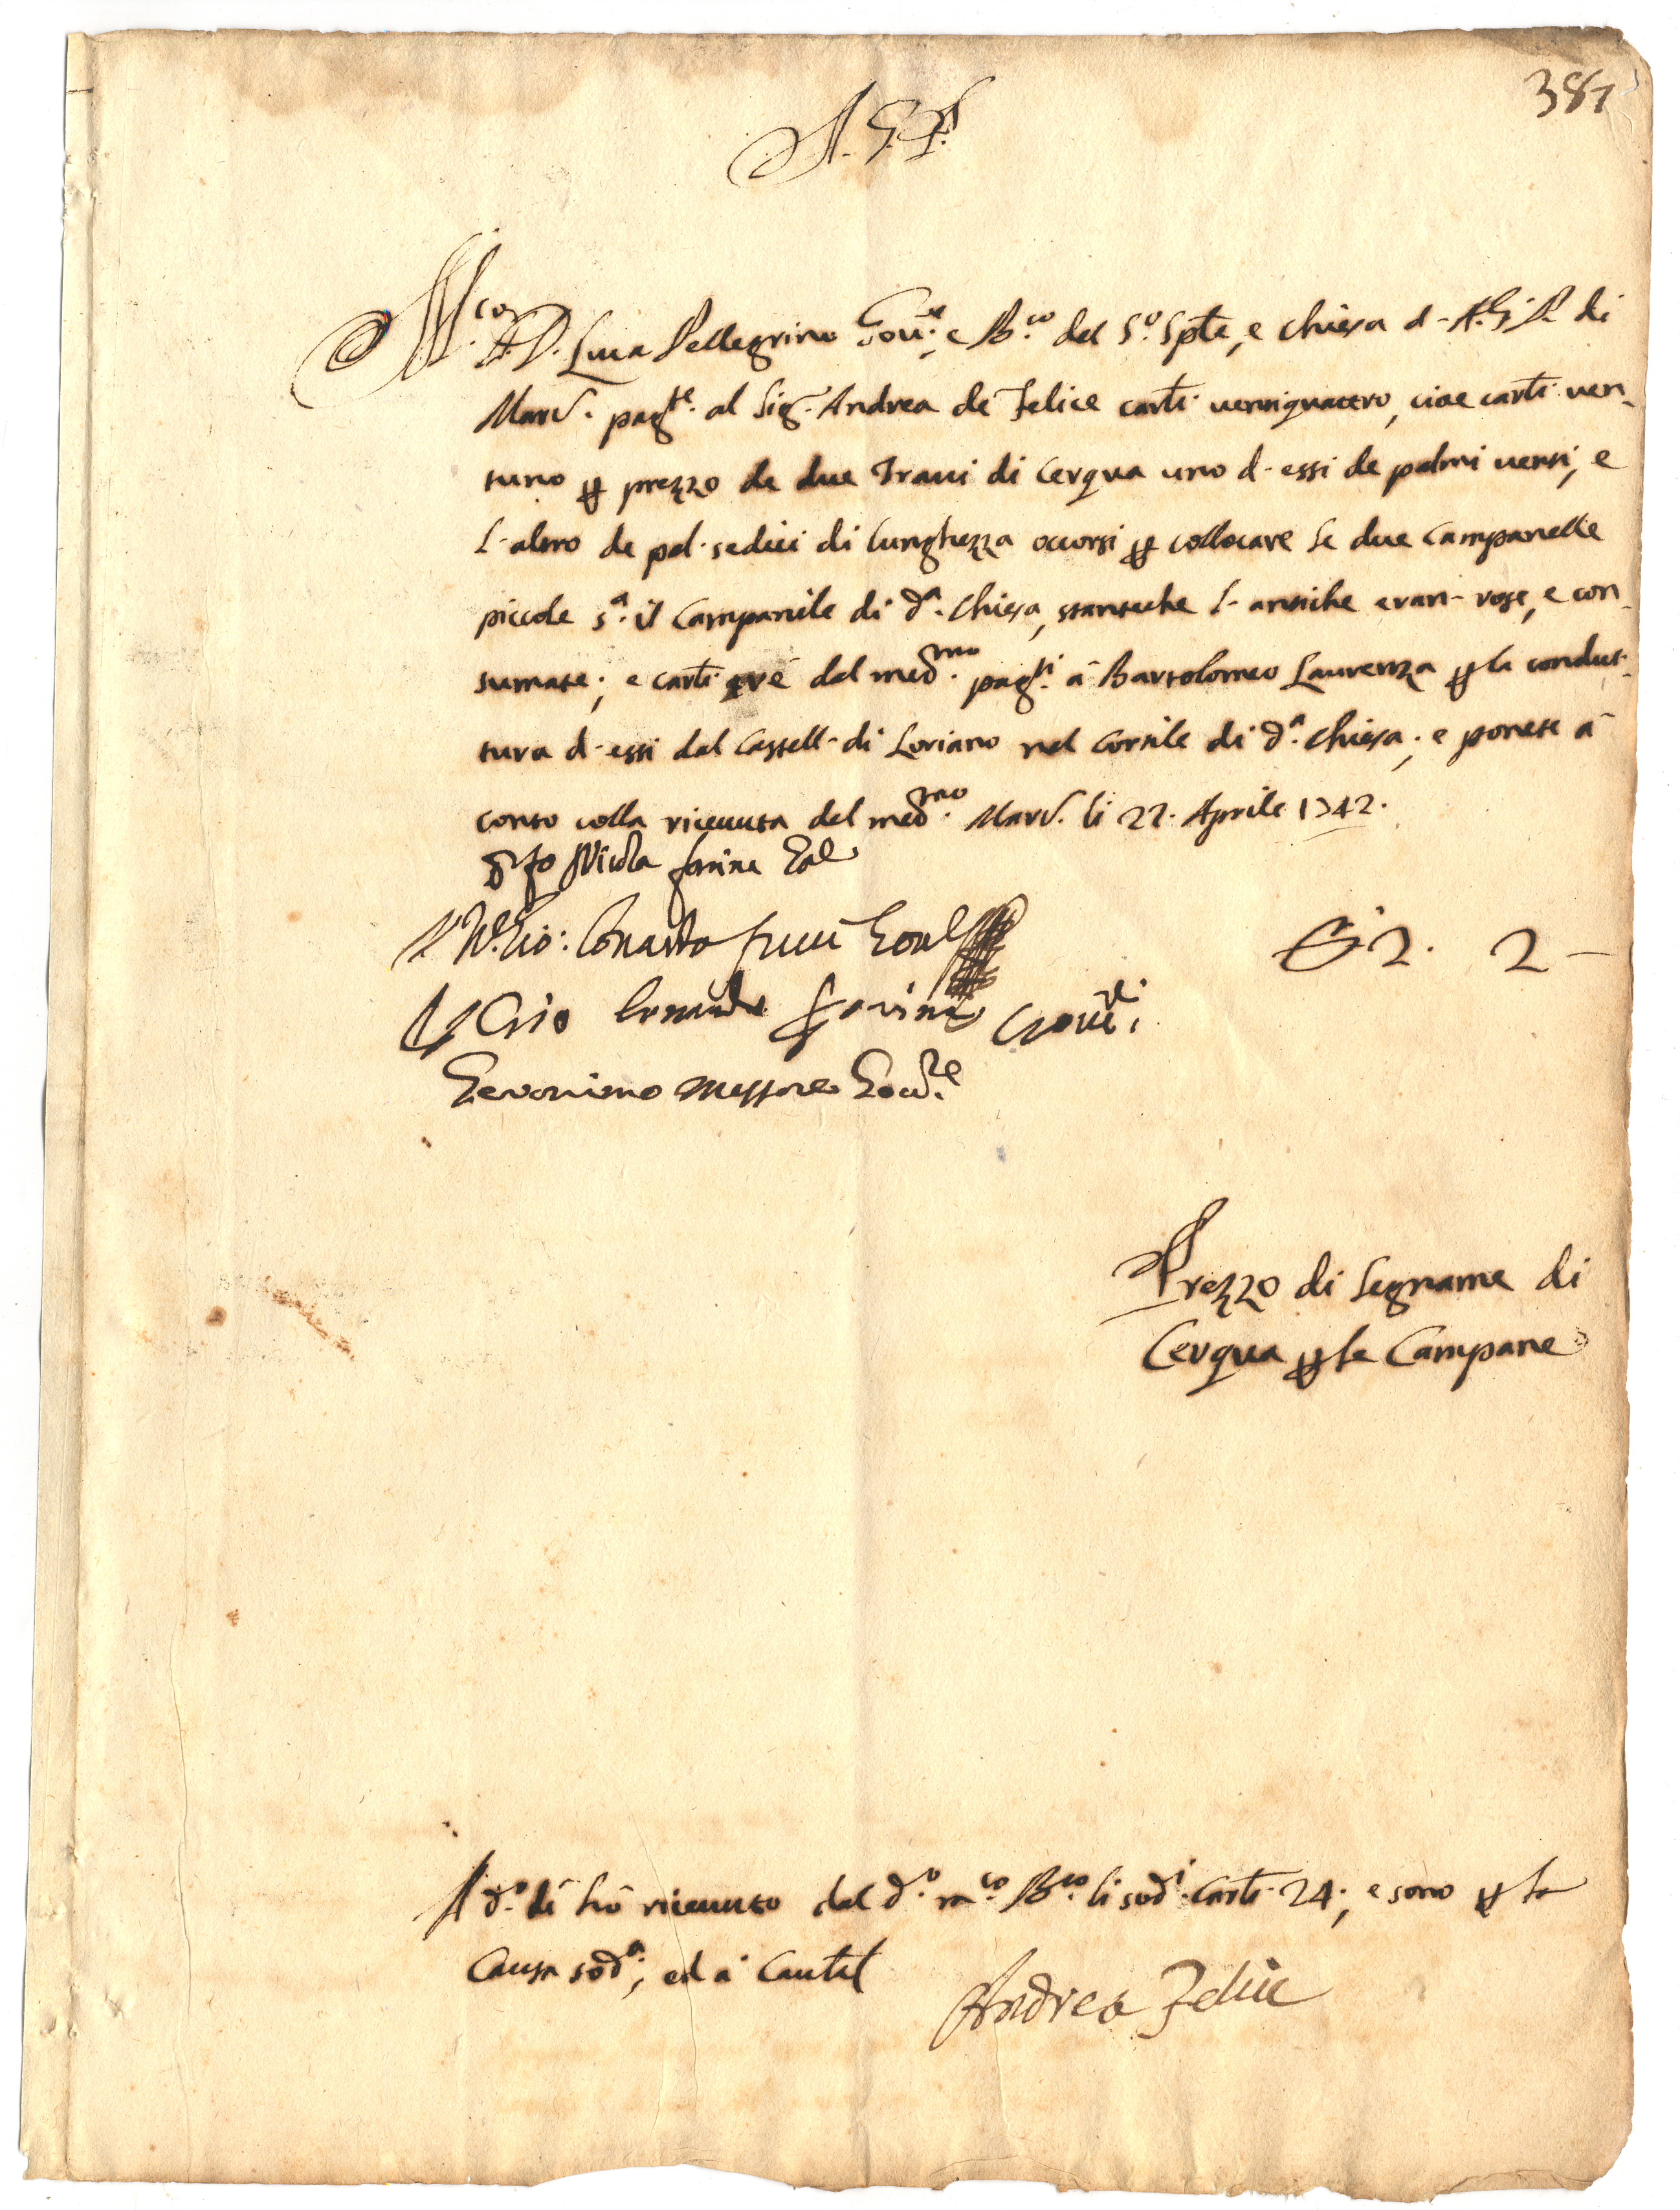 387
A. G. P.
M.co D. Luca Pellegrino Gov.re, e B.co del S.o Sple, e Chiesa d- A. G. P. di
Marc. pag.te al Sig. Andrea de Felice carli ventiquattro, cioe carli ven-
tuno p prezzo de due Travi di Cerqua uno d-essi de palmi venti, e
l-altro de pal. sedici di lunghezza occorsi p collocare le due Campanelle
piccole s.a il Campanile di d.a Chiesa, stanteche l-antiche eran- rose, e con-
sumate; e carli tré del med.mo pag.ti á Bartolomeo Laurenza p la condut-
tura d-essi dal Castell- di Loriano nel Cortile di d.a Chiesa; e ponete á
conto colla ricevuta del med.mo Marc. li 22. Aprile 1742.
Nicola
2. 2 -
Geronimo Messore Gov.re
Prezzo di legname di
Cerqua p le Campane
A d.o dí hó ricevuto dal d.o m.co B.co li sod.i Carli 24; e sono p la
Causa sod.a; ed á Cautel
Andrea Felice